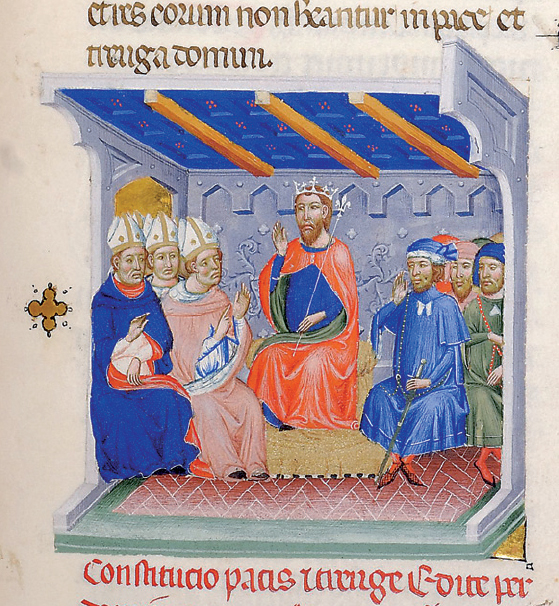 eties eorum non habeantur in pace et
treuga domini.
Constitucio pacis & treuge Edite per